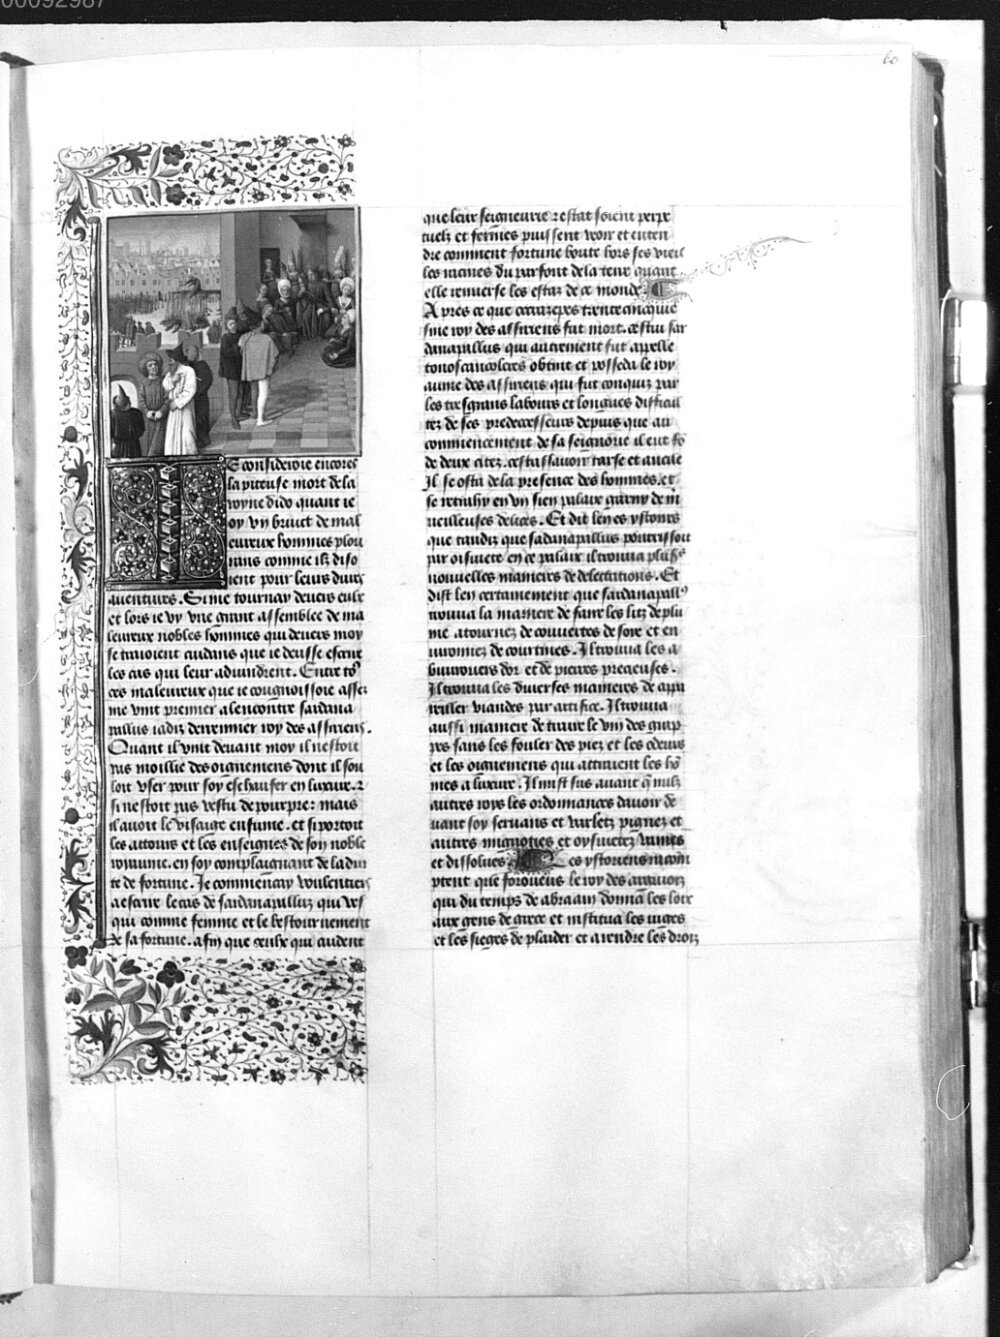 00092987
60
E consideroie encores
la piteuse mort de la
royne dido quant ie
oy vn bruict de mal
eureux hommes plou
rans comme ilz diso
ient pour leurs diuers
auentures. Si me tournay deuers eulx
et lors ie vy vne grant assemblee de ma
leureux nobles hommes qui deuers moy
se tiroient cuidans que ie deusse escrire
les cas qui leur aduindrent. Entre tos
ces maleureux que ie congnoissoie asses
me vint premier alencontre sardana
pallus iadiz derrenier roy des assiriens.
Quant il vint deuant moy il nestoit
pas moillie des oignemens dont il sou
loit vser pour soy eschaufer en luxure. et
si nestoit pas vestu de pourpre: mais
il auoit le visaige enfume. et si portoit
les attours et les enseignes de son noble
royaume. en soy complaignant de la dur
te de fortune. Je commencay voulentiers
a escrire le cas de sardanapalluz qui ves
qui comme femme et le bestournement
de sa fortune. afin que ceulx qui cuident
que leur seigneurie et estat soient perpe
tuelz et fermes puissent veoir et enten
dre comment fortune boute hors ses vieil
les racines du parfont de la terre quant
elle renuerse les estaz de ce monde.
Apres ce que ocrazepes trentecincquie
sme roy des assiriens fut mort. cestui sar
danapallus qui autrement fut appelle
tonosconcoleros obtint et posseda le roy
aume des assiriens qui fut conquiz par
les tresgrans labours et longues difficul
tez de ses predecesseurs depuis que au
commencement de sa seignorie il eut fo
de deux citez. cestassauoir tarse et anciale
Il se osta de la presence des hommes. et
se retrahy en vn sien palaix garny de m
ueilleuses delices. Et dit len es ystoires
que tandiz que sadanapallus pourrissoit
par oisiuete en ce palaix il trouua pluss
nouuelles manieres de delectations. Et
dist len certainement que sardanapallus
trouua la maniere de faire les litz de plu
me atournez de couuertes de soye et en
uironnez de courtines. Il trouua les a
buurouers dor et de pierres precieuses.
Il trouua les diuerses manieres de appa
reiller viandes par artifice. Il trouua
aussi maniere de traire le vin des grap
pes sans les fouler des piez et les odeurs
et les oignemens qui attraient les ho
mes a luxure. Il mist sus auant que nulz
autres roys les ordonnances dauoir de
uant soy seruans et varletz pignez et
autres mignoties et oysiuetez vaines
et dissolues. Les ystoriens racon
ptent que foroneus le roy des argiuois
qui du temps de abraam donna les loix
aux gens de grece et institua les iuges
et les sieges de plaider et a rendre les drois